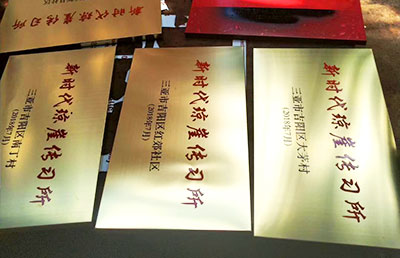 新时代琼崖传习所
新时代琼崖传习所
三亚市吉阳区南丁村
(2018年7月)
新时代琼崖传习所
三亚市吉阳区红郊社区
(2018年7月)
新时代琼崖传习所
三亚市吉阳区大茅村
(2018年7月)